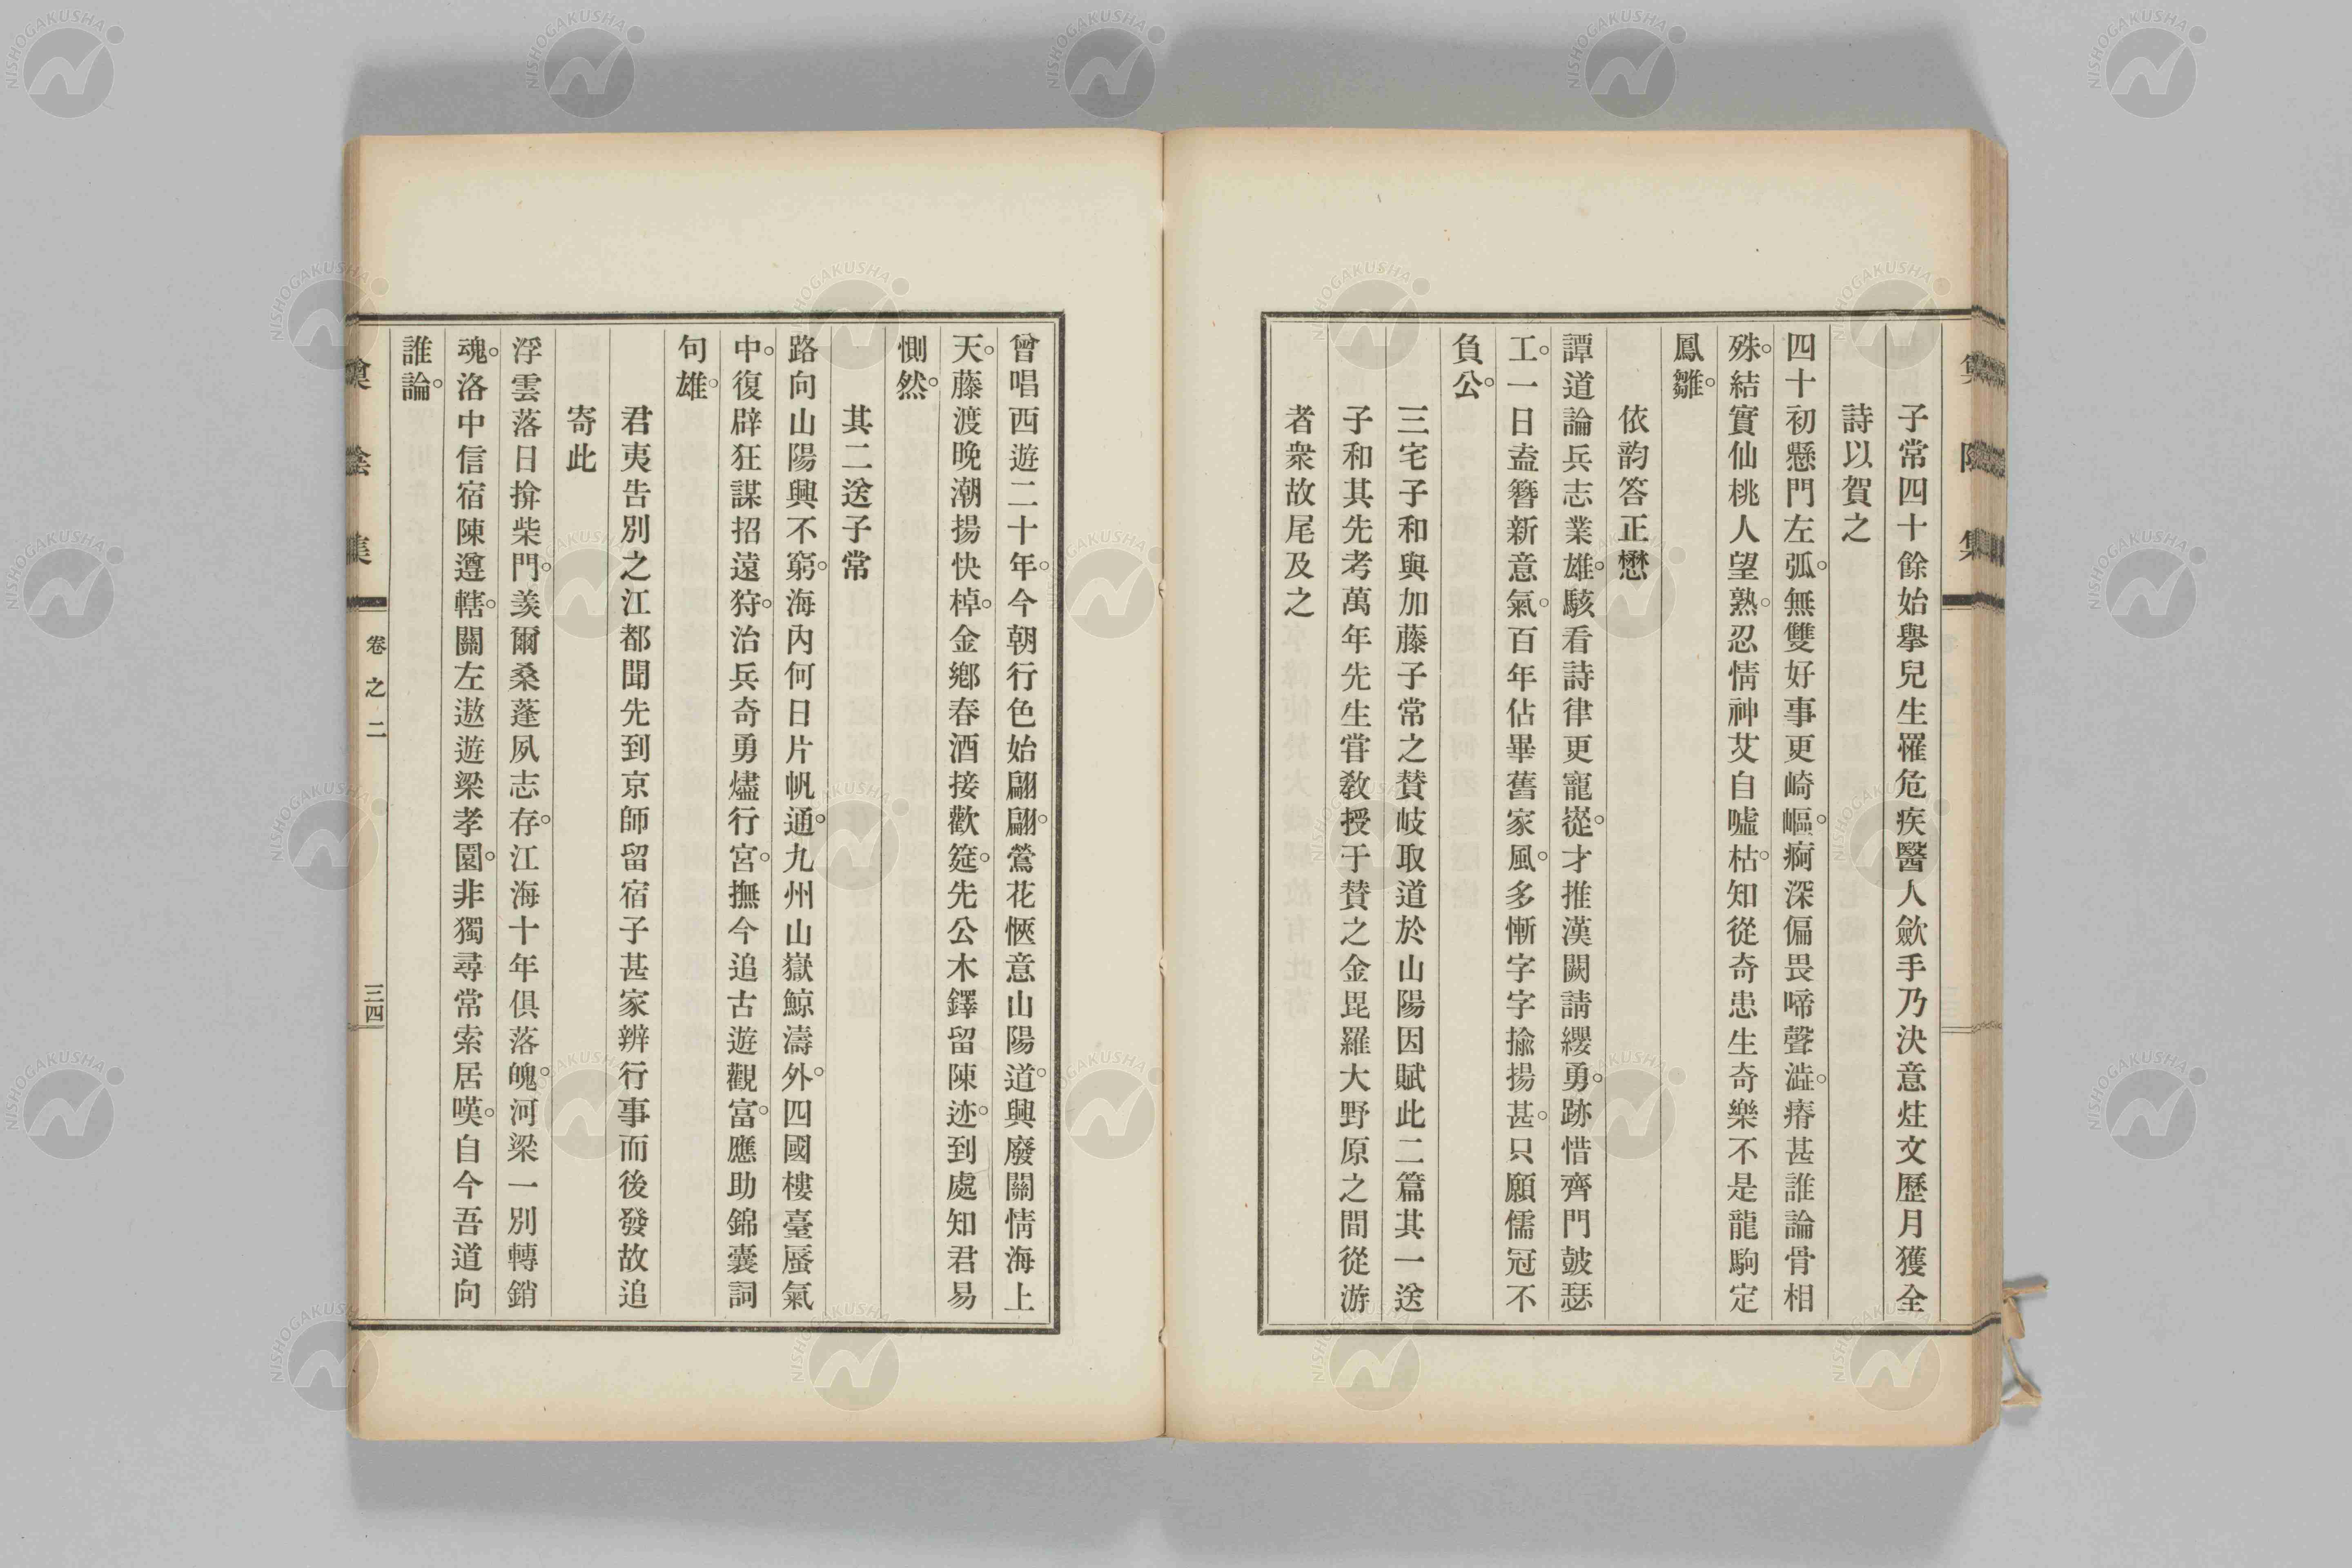 子常四十餘始擧兒生罹危疾醫人歛手乃決意炷文歷月獲全
詩以賀之
四十初懸門左弧。無雙好事更崎嶇。痾深偏畏啼聲澁。瘠甚誰論骨相
殊。結實仙桃人望熟。忍情神艾自嘘枯。知從奇患生奇樂不是龍駒定
鳳雛。
依韵答正懋
譚道論兵志業雄。駭看詩律更寵嵸。才推漢闕請纓勇。跡惜齊門皷瑟
工。一日盍簪新意氣。百年佔畢舊家風。多慚字字揄揚甚。只願儒冠不
負公。
三宅子和與加藤子常之賛岐取道於山陽因賦此二篇其一送
子和其先考萬年先生甞敎授于賛之金毘羅大野原之間從游
者衆故尾及之
曾唱西遊二十年。今朝行色始翩翩。鶯花愜意山陽道。興廢關情海上
天。藤渡晩潮揚快棹。金鄕春酒接歡筵。先公木鐸留陳迹。到處知君易
惻然。
其二送子常
路向山陽興不窮。海內何日片帆通。九州山嶽鯨濤外。四國樓臺蜃氣
中。復辟狂謀招遠狩。治兵奇勇燼行宮。撫今追古遊觀富。應助錦囊詞
句雄。
君夷告別之江都聞先到京師留宿子甚家辨行事而後發故追
寄此
浮雲落日揜柴門。羨爾桑蓬夙志存。江海十年俱落魄。河梁一別轉銷
魂。洛中信宿陳遵轄。關左遨遊梁孝園。非獨尋常索居嘆。自今吾道向
誰論。
卷之二
三四